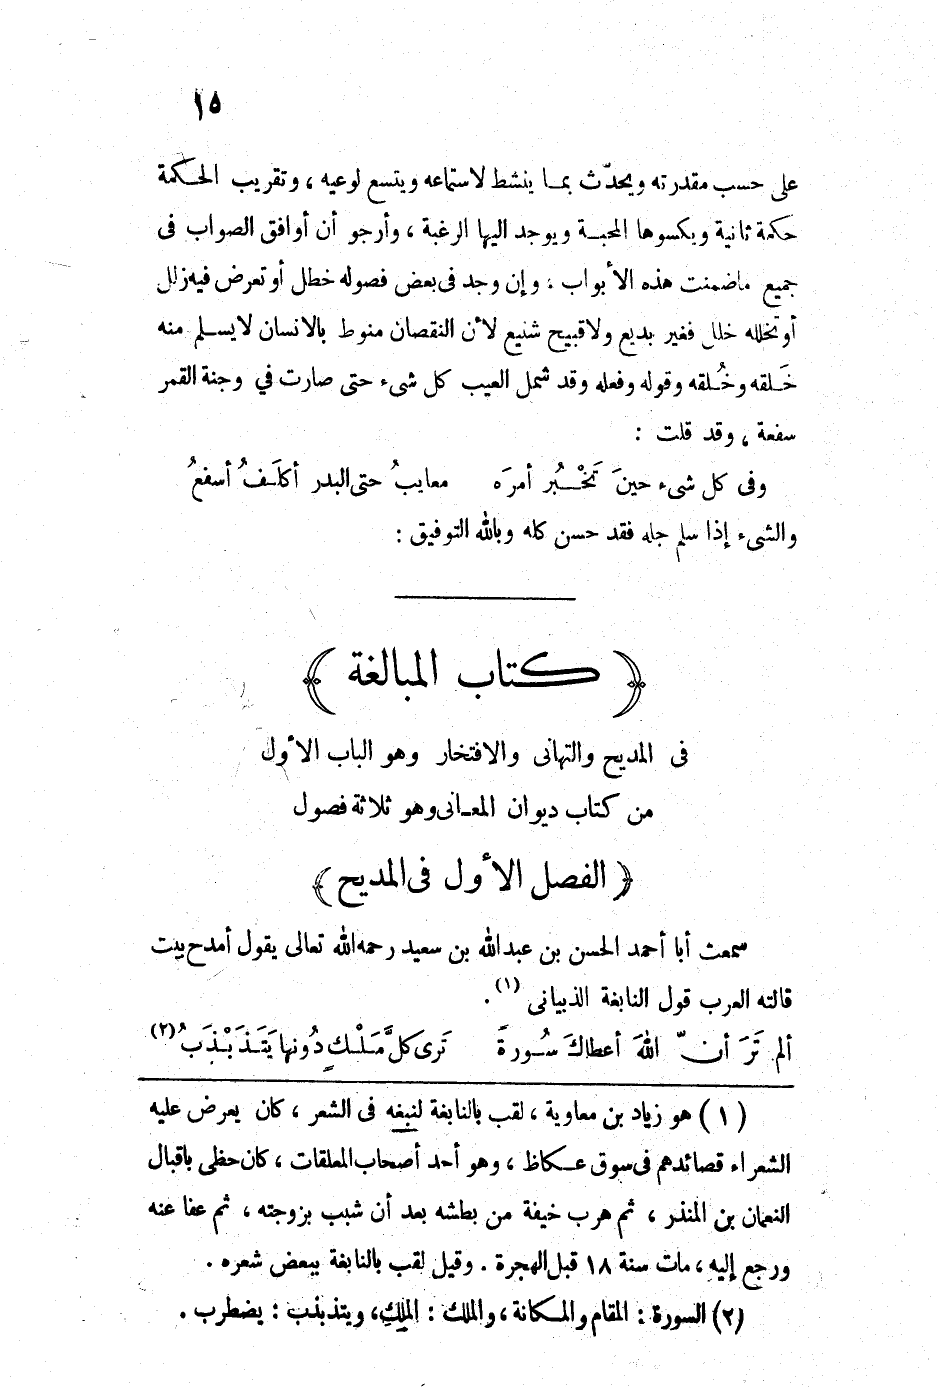 ١٥
على حسب مقدرته ويحدّث بما ينشط لاستماعه ويتسع لوعيه ، وتقريب الحكمة
حكمة ثانية ويكسوها المحبة ويوجد اليها الرغبة ، وأرجو أن أوافق الصواب فى
جميع ماضمنت هذه الأبواب ، وإن وجد فى بعض فصوله خطل أو تعرض فيه زلل
أو تخلله خلل فغير بديع ولا قبيح شنيع لأن النقصان منوط بالانسان لا يسلم منه
خَلقه وخُلقه وقوله وفعله وقد شمل العيب كل شىء حتى صارت في وجنة القمر
سفعة ، وقد قلت :
وفى كل شىء حينَ تَخْبُر أمرَه معايبُ حتى البدر أكلَفُ أسفعُ
والشىء إذا سلم جله فقد حسن كله وبالله التوفيق :
﴿ كتاب المبالغة ﴾
فى المديح والتهانى والافتخار وهو الباب الأول
من كتاب ديوان المعانى وهو ثلاثة فصول
﴿ الفصل الأول فى المديح ﴾
سمعت أبا أحمد الحسن بن عبد الله بن سعيد رحمه الله تعالى يقول أمدح بيت
قالته العرب قول النابغة الذبيانى (١) .
ألم تَرَ أنّ اللهَ أعطاكَ سُورةً تَرى كلَّ مَلْكٍ دُونها يَتَذَبْذَبُ (٢)
(١) هو زياد بن معاوية ، لقب بالنابغة لنبغه فى الشعر ، كان يعرض عليه
الشعراء قصائدهم فى سوق عكاظ ، وهو أحد أصحاب المعلقات ، كان حظى باقبال
النعمان بن المنذر ، ثم هرب خيفة من بطشه بعد أن شبب بزوجته ، ثم عفا عنه
ورجع إليه ، مات سنة ١٨ قبل الهجرة . وقيل لقب بالنابغة ببعض شعره .
(٢) السورة : المقام والمكانة ، والملك : الملِك، ويتذبذب : يضطرب .